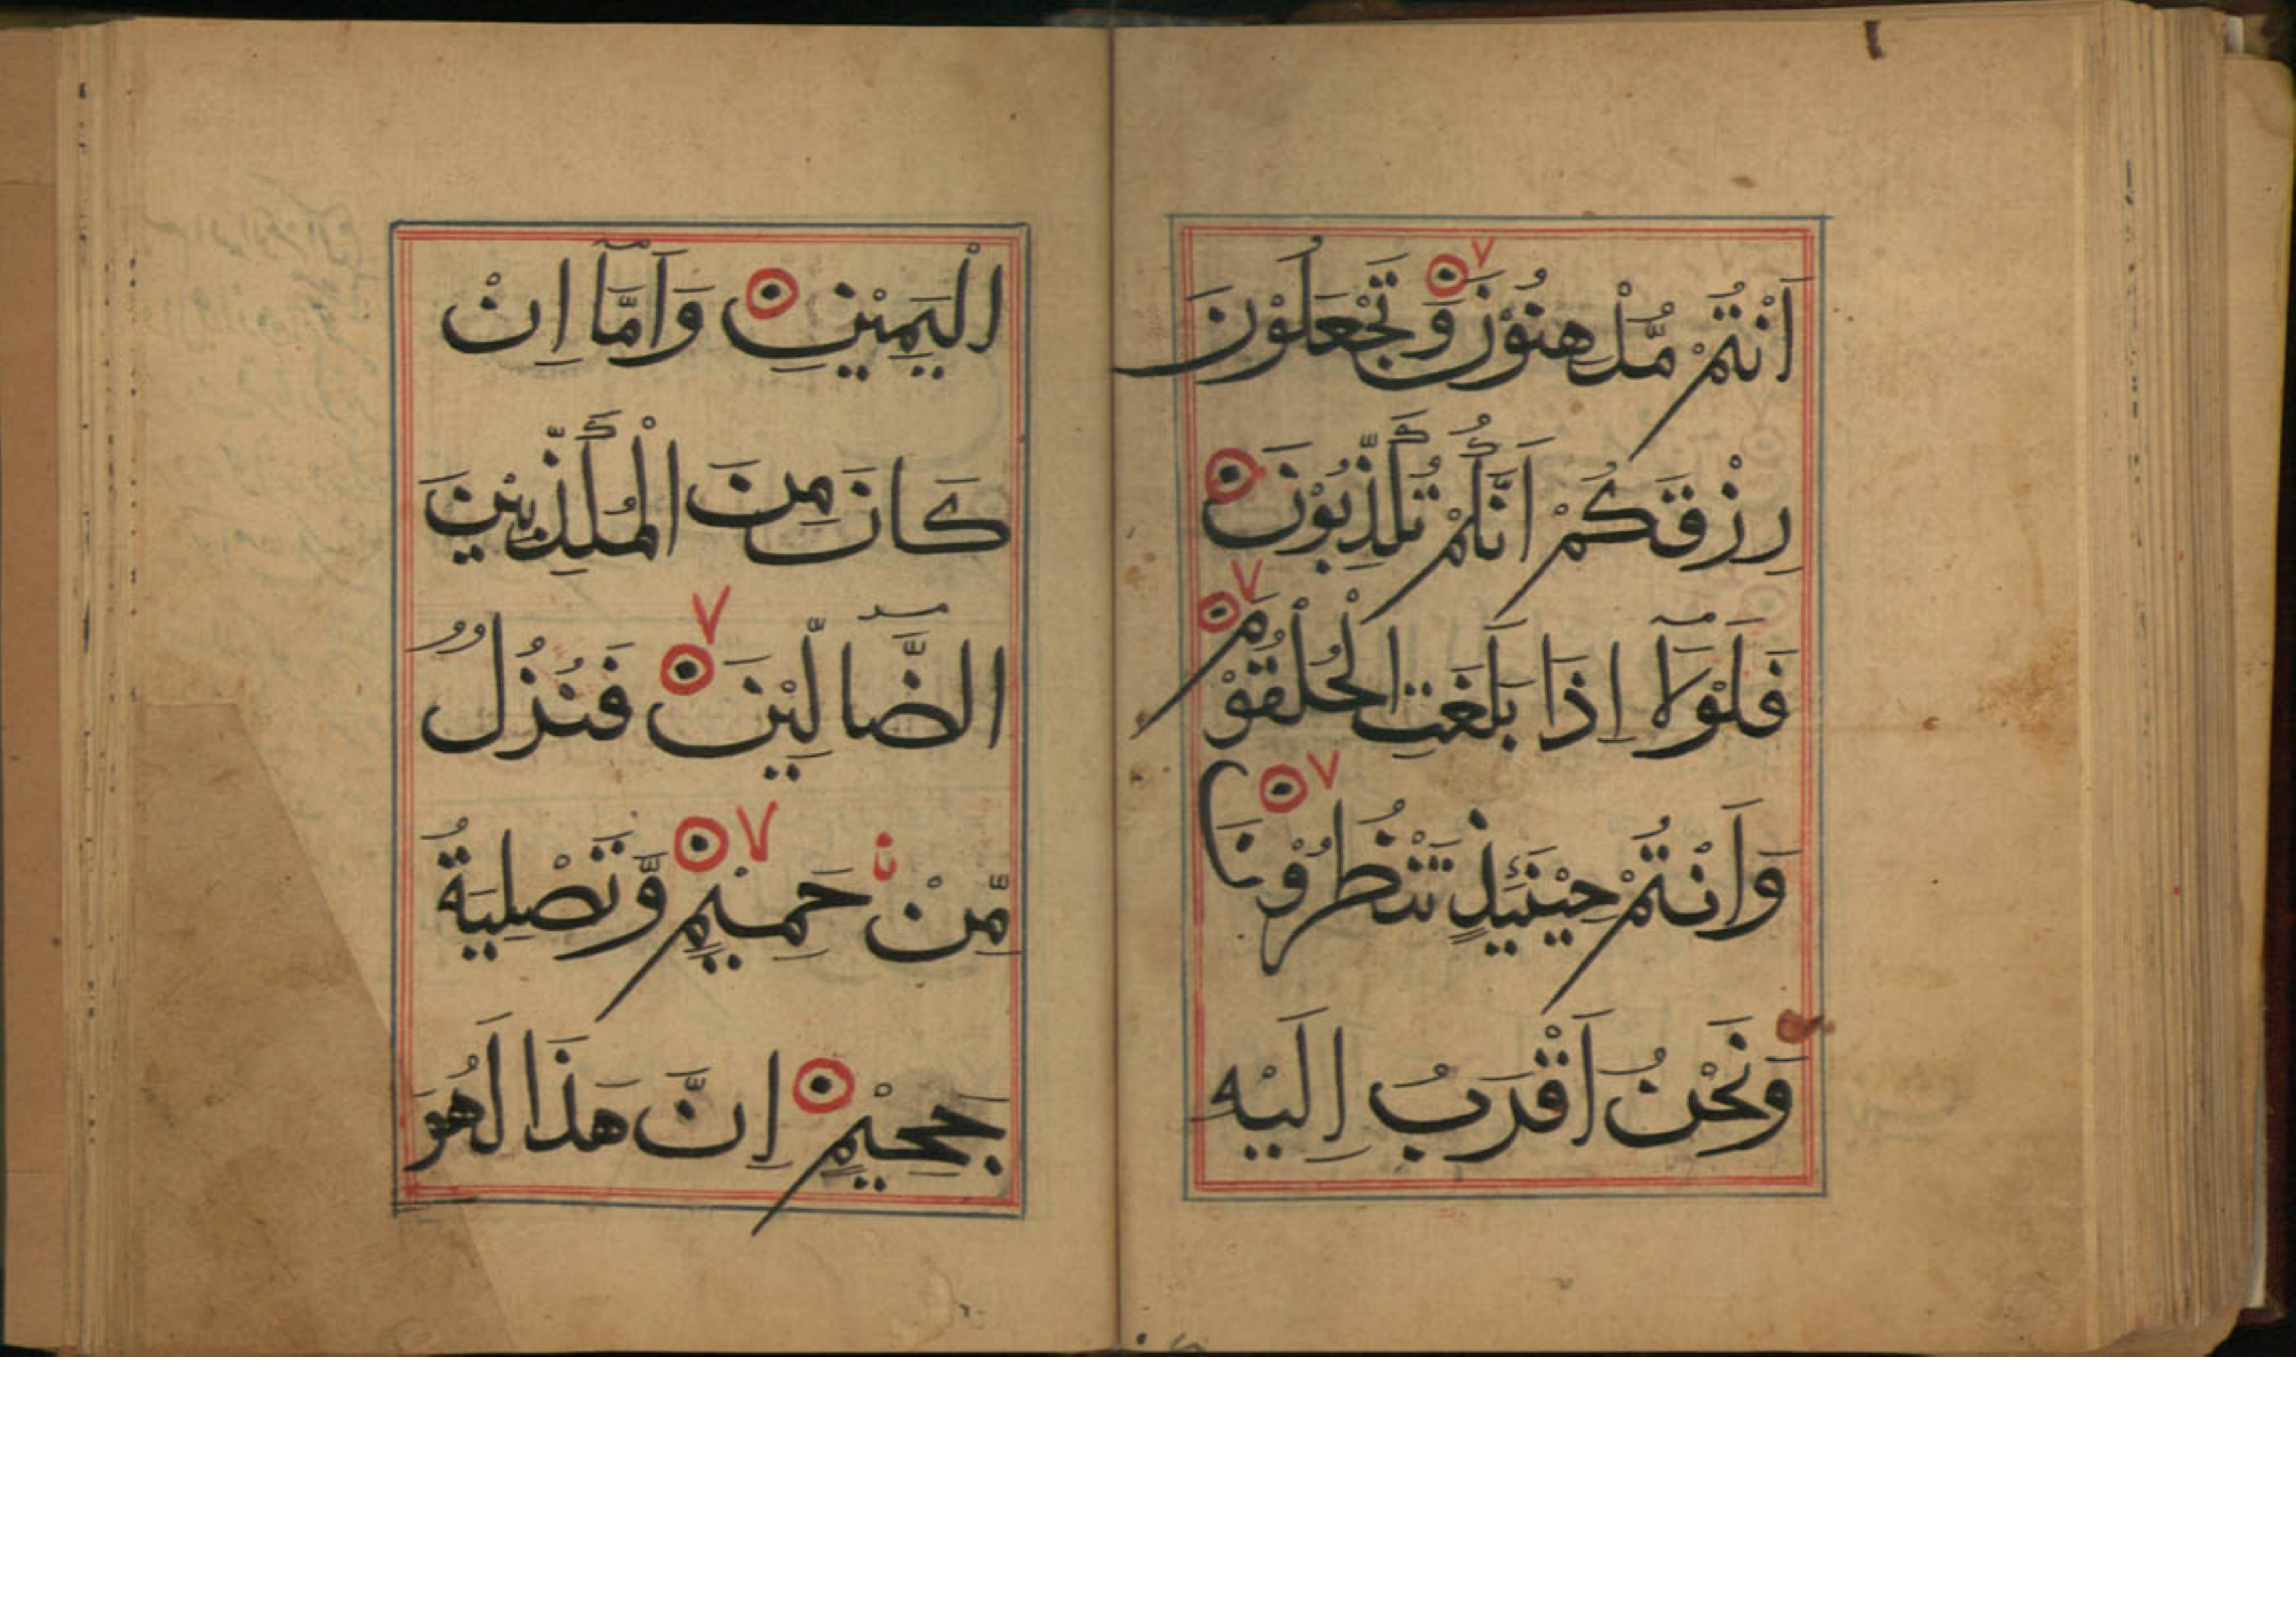 اَنْتُمْ مُّدْهِنُوْنَ وَتَجْعَلُوْنَ
رِزْقَكُمْ اَنَّكُمْ تُكَذِّبُوْنَ
فَلَوْلَآ اِذَا بَلَغَتِ الْحُلْقُوْمَ
وَاَنْتُمْ حِيْنَئِذٍ تَنْظُرُوْنَ
وَنَحْنُ اَقْرَبُ اِلَيْهِ
الْيَمِيْنِ وَاَمَّآ اِنْ
كَانَ مِنَ الْمُكَذِّبِيْنَ
الضَّآلِّيْنَ فَنُزُلٌ
مِّنْ حَمِيْمٍ وَّتَصْلِيَةُ
جَحِيْمٍ اِنَّ هَذَا لَهُوَ